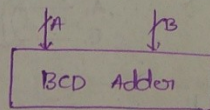 A B
BCD Adder